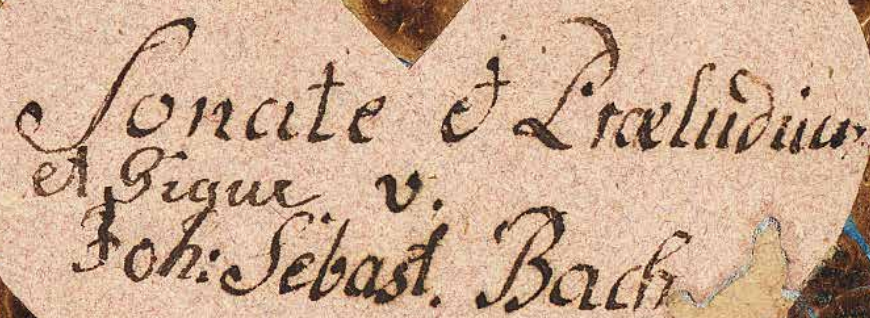 Sonate et Præludium
et Gigue v.
Joh: Sebast. Bach